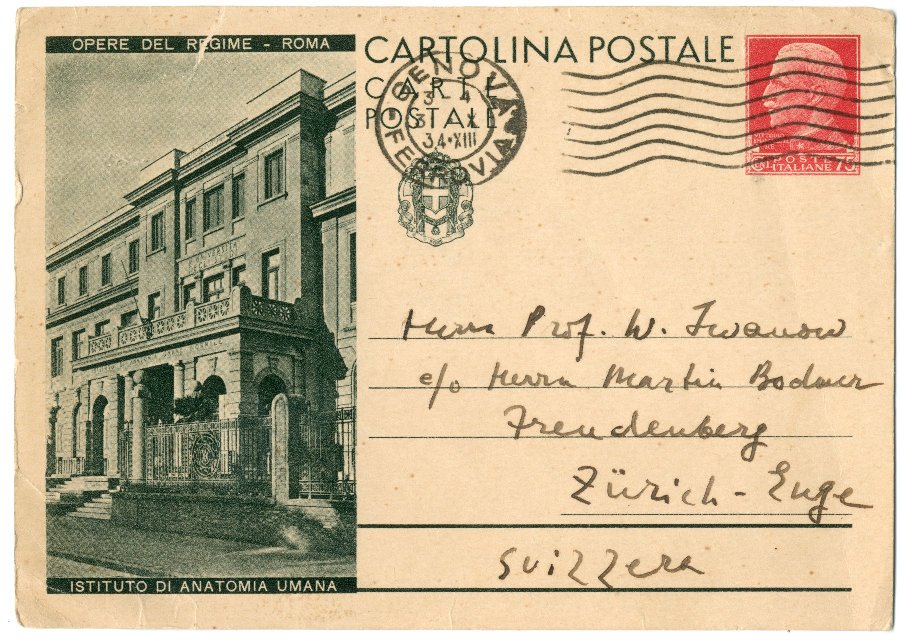 OPERE DEL REGIME - ROMA
CARTOLINA POSTALE
CARTE
POSTALE
GENOVA
FERROVIA
34·XIII
POSTE
ITALIANE 75
Herrn Prof. W. Iwanow
c/o Herrn Martin Bodmer
Freudenberg
Zürich - Enge
Svizzera
ISTITUTO DI ANATOMIA UMANA